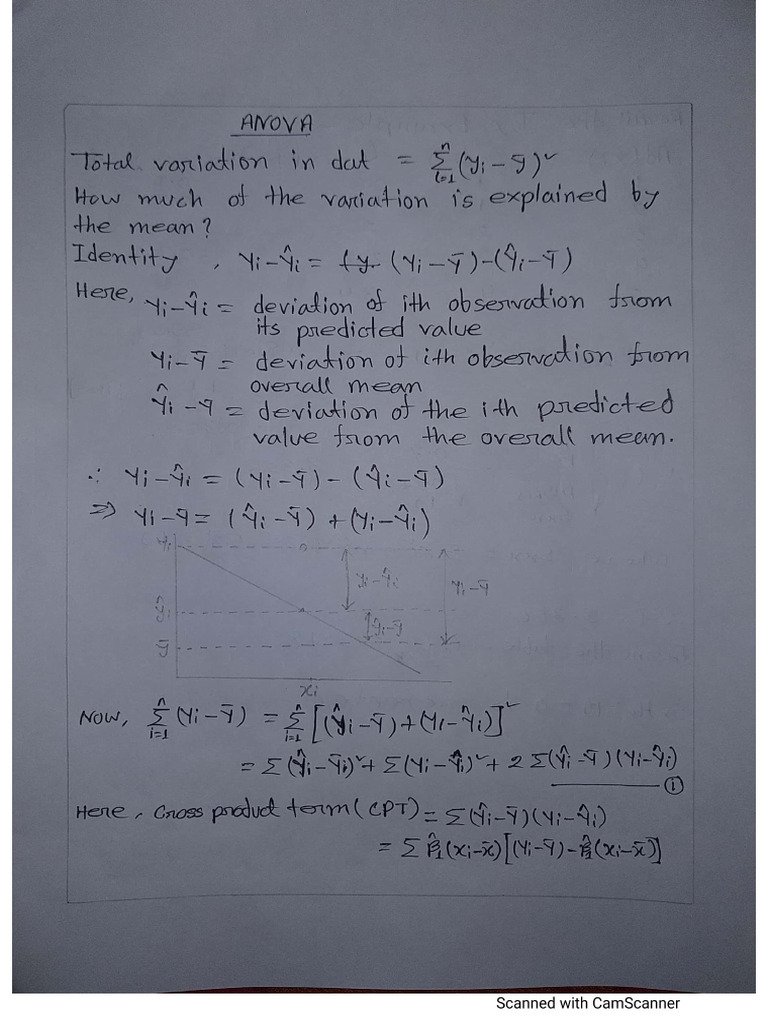 ANOVA
Total variation in dat = Σ_{i=1}^{n} (yi - ȳ)²
How much of the variation is explained by
the mean?
Identity, Yi - Ŷi = (Yi - Ȳ) - (Ŷi - Ȳ)
Here, Yi - Ŷi = deviation of ith observation from
its predicted value
Yi - Ȳ = deviation of ith observation from
overall mean
Ŷi - Ȳ = deviation of the ith predicted
value from the overall mean.
∴ Yi - Ŷi = (Yi - Ȳ) - (Ŷi - Ȳ)
⇒ Yi - Ȳ = (Ŷi - Ȳ) + (Yi - Ŷi)
yi
yi - ŷi
yi - ȳ
ŷi
ŷi - ȳ
ȳ
xi
Now, Σ_{i=1}^{n} (Yi - Ȳ) = Σ_{i=1}^{n} [(Ŷi - Ȳ) + (Yi - Ŷi)]²
= Σ (Ŷi - Ȳi)² + Σ (Yi - Ŷi)² + 2 Σ (Ŷi - Ȳ) (Yi - Ŷi)
①
Here, Cross product term (CPT) = Σ (Ŷi - Ȳ) (Yi - Ŷi)
= Σ β̂1 (xi - x̄) [(Yi - Ȳ) - β̂1 (xi - x̄)]
Scanned with CamScanner